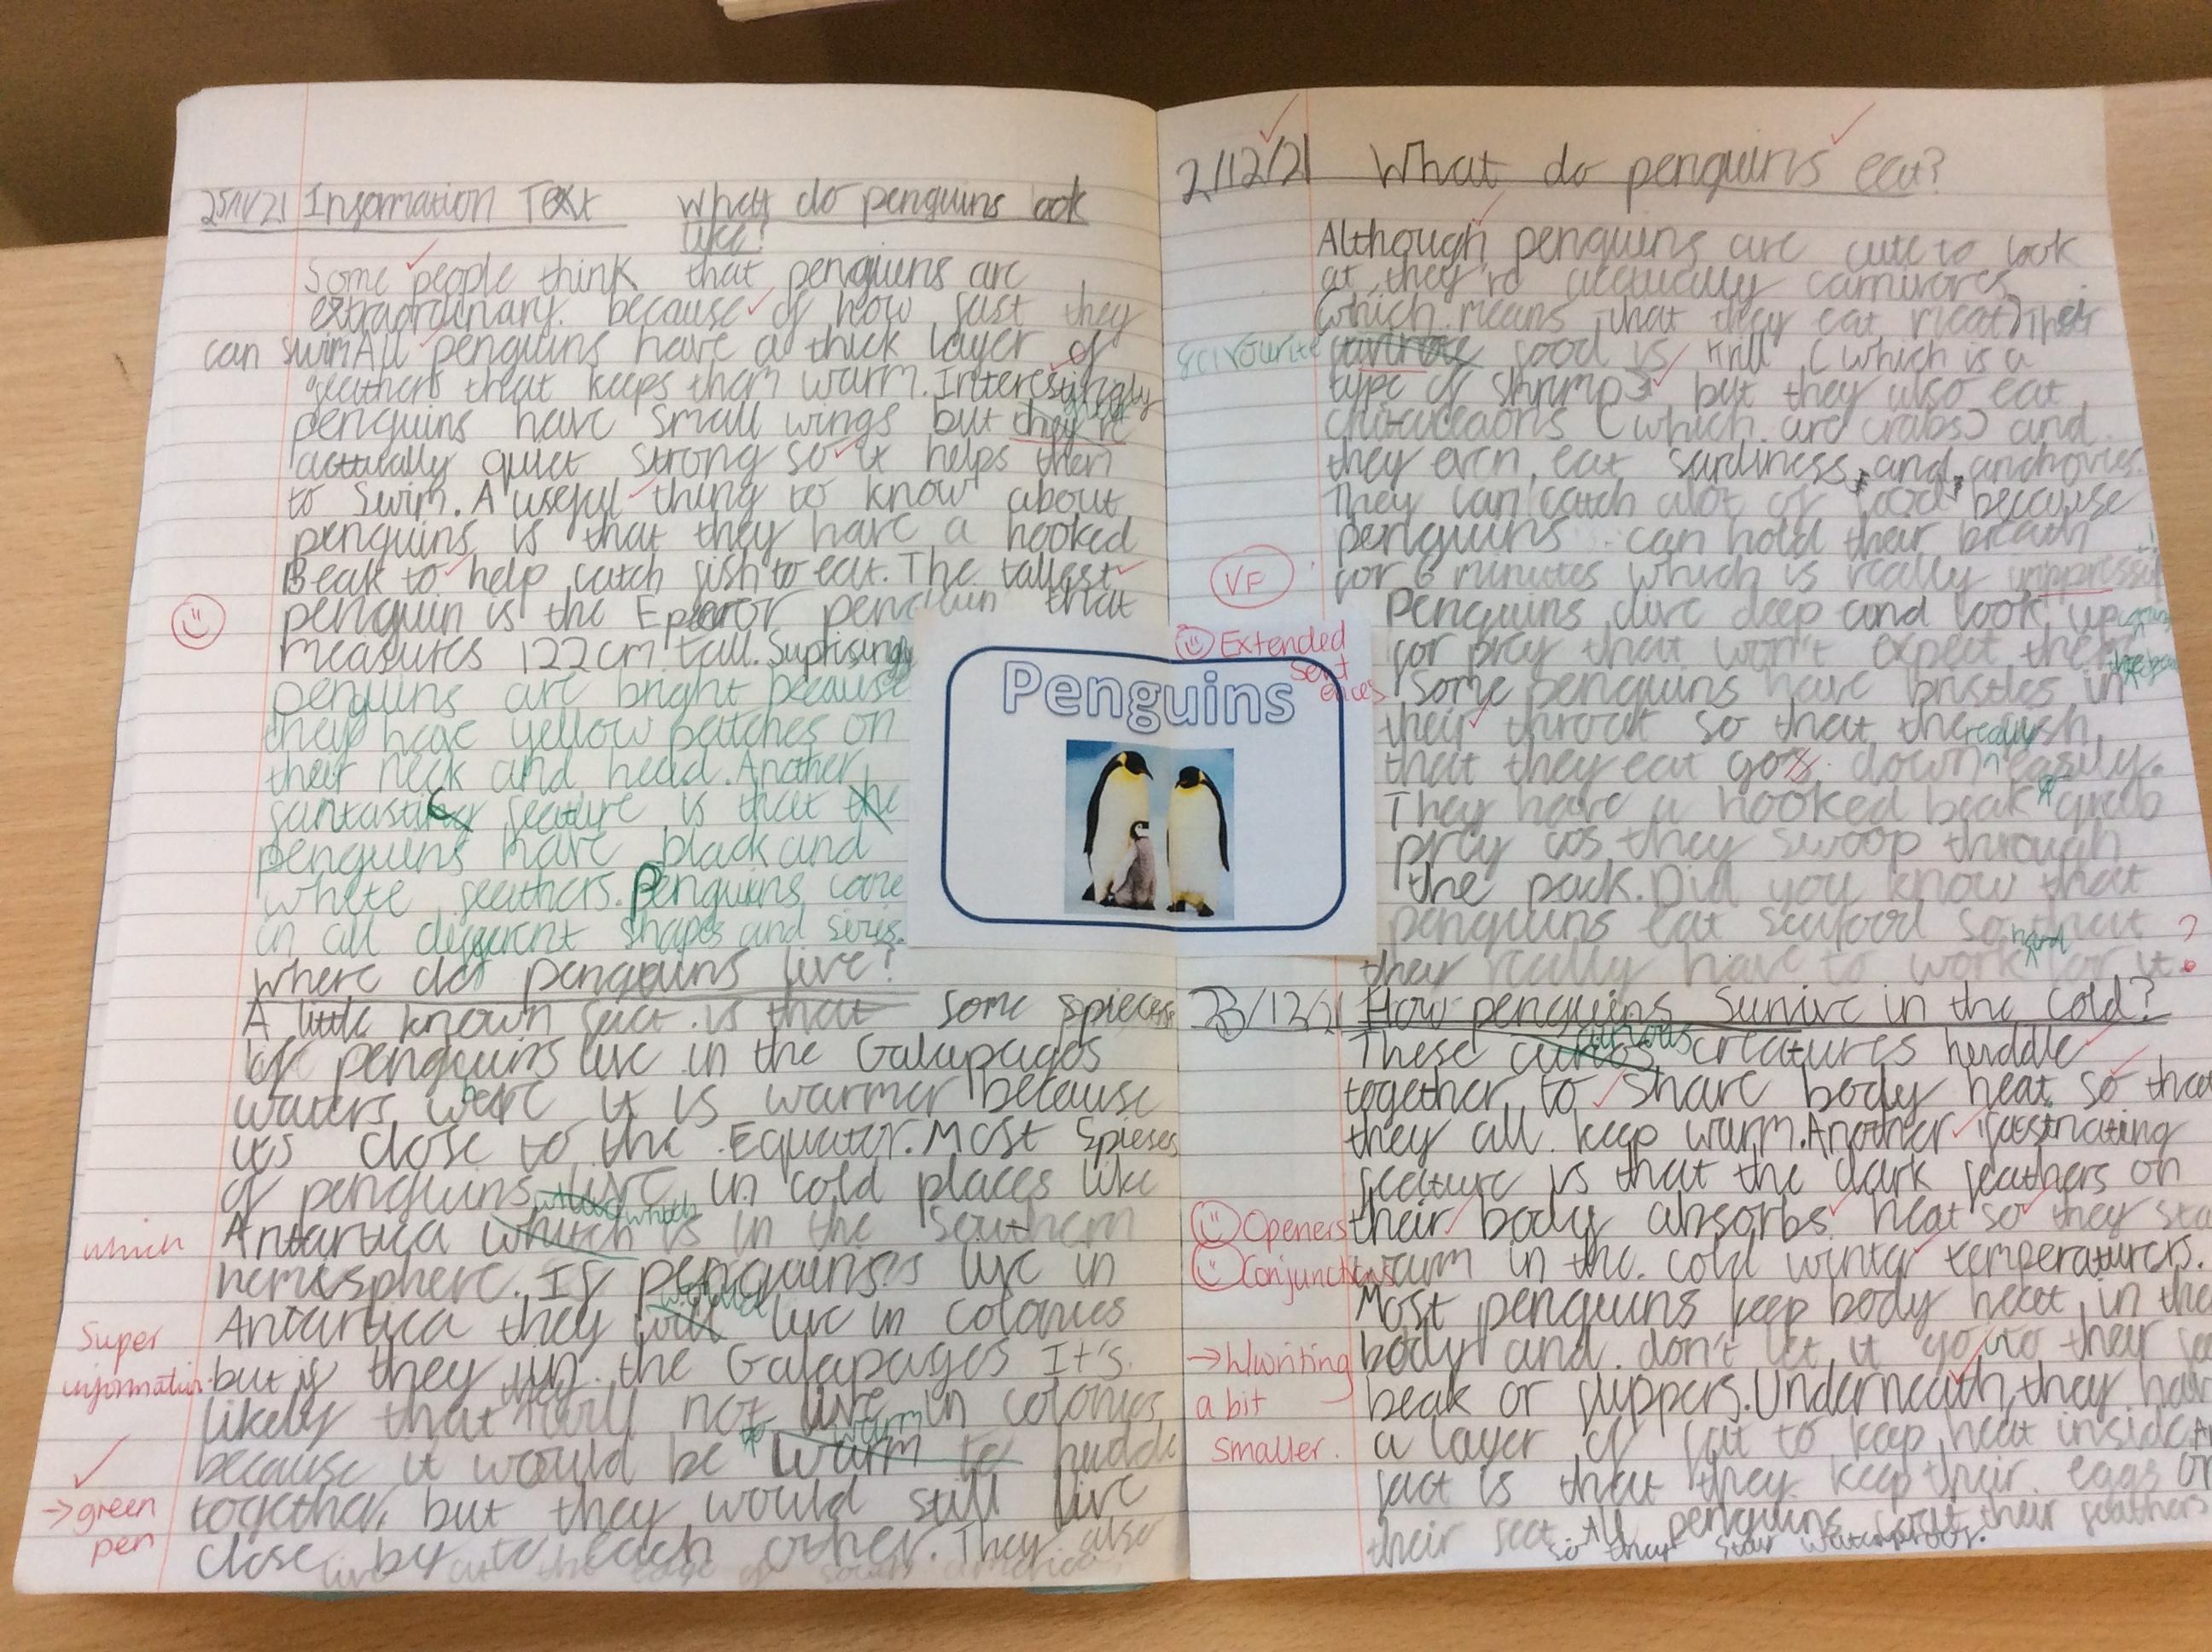 25/11/21 Information Text What do penguins look
like?
Some people think that penguins are
extraordinary. because of how fast they
can swim All penguins have a thick layer of
feathers that keeps them warm. Interestingly
penguins have small wings but they're
acttually quiet strong so it helps them
to swim. A useful thing to know about
penguins is that they have a hooked
Beak to help catch fish to eat. The tallest
penguin is the Emperor penguin that
measures 122cm tall. Suprisingly
penguins are bright because
they have yellow patches on
their neck and head. Another
fantastic feature is that the
penguins have black and
white feathers. Penguins come
in all different shapes and sizes.
Where do penguins live?
A little known fact is that some spieces
of penguins live in the Galapagos
waters where it is warmer because
it's close to the Equator. Most spieses
of penguins live in cold places like
which
Antartica whitch which is in the Southern
hemisphere. If penguins live in
Antartica they will would live in colonies
Super
information.
but if they in the Galapagos It's
likely that they will not live in colonies
because it would be to warm to hudde
together, but they would still live
→ green
pen
close by to each other. They also
live at the edge of South America.
Penguins
2/12/21 What do penguins eat?
Although penguins are cute to look
at they're acctually carnivores
(which means that they eat meat) Their
favourite food is krill (which is a
type of shrimp) but they also eat
(which are crabs) and
they even eat sardiness, and, anchovies.
They can catch alot of food because
penguins can hold their breath
VF
for 6 minutes which is really
Penguins dive deep and look up
Extended
sent
ences
for prey that won't expect them
Some penguins have bristles in
their throat so that the fish
that they eat go down easily.
They have a hooked beak grab
prey as they swoop through
the pack. Did you know that
penguins eat seafood so that
they really have to work hard for it?
3/12/21 How penguins Survive in the cold?
These curious creatures huddle
together to share body heat so that
they all keep warm. Another fastnating
feature is that the dark feathers on
Openers
their body absorbs heat so they sta
Conjunctions
warm in the cold winter temperatures.
Most penguins keep body heat in the
→ Writing
a bit
smaller.
body and don't let it go to their
beak or flippers. Underneath, they hav
a layer of fat to keep heat inside. A
fact is that they keep their eggs on
their feet. All penguins their feathers
so they stay waterproof.